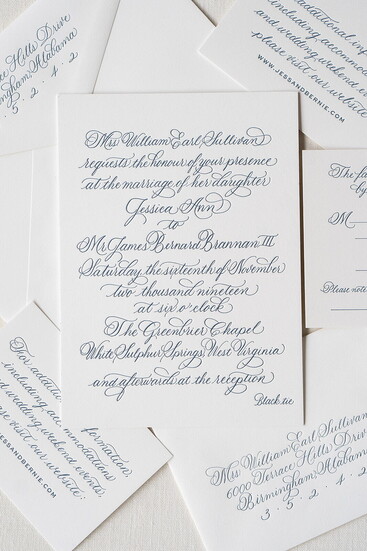 Mrs William Earl Sullivan
requests the honour of your presence
at the marriage of her daughter
Jessica Ann
to
Mr James Bernard Brannan III
Saturday, the sixteenth of November
two thousand nineteen
at six o'clock
The Greenbrier Chapel
White Sulphur Springs, West Virginia
and afterwards at the reception
Black tie
ace Hills Drive
ngham, Alabama
5 · 2 · 4 · 2
additional info
including accommodat
and wedding weekend e
please visit our website
WWW.JESSANDBERNIE.COM
The fa
by
M
Please note
For addit
including accommodations
and wedding weekend events,
please visit our website:
ESSANDBERNIE.COM
ormation,
Mrs William Earl Sullivan
6000 Terrace Hills Drive
Birmingham, Alabama
3 · 5 · 2 · 4 · 2